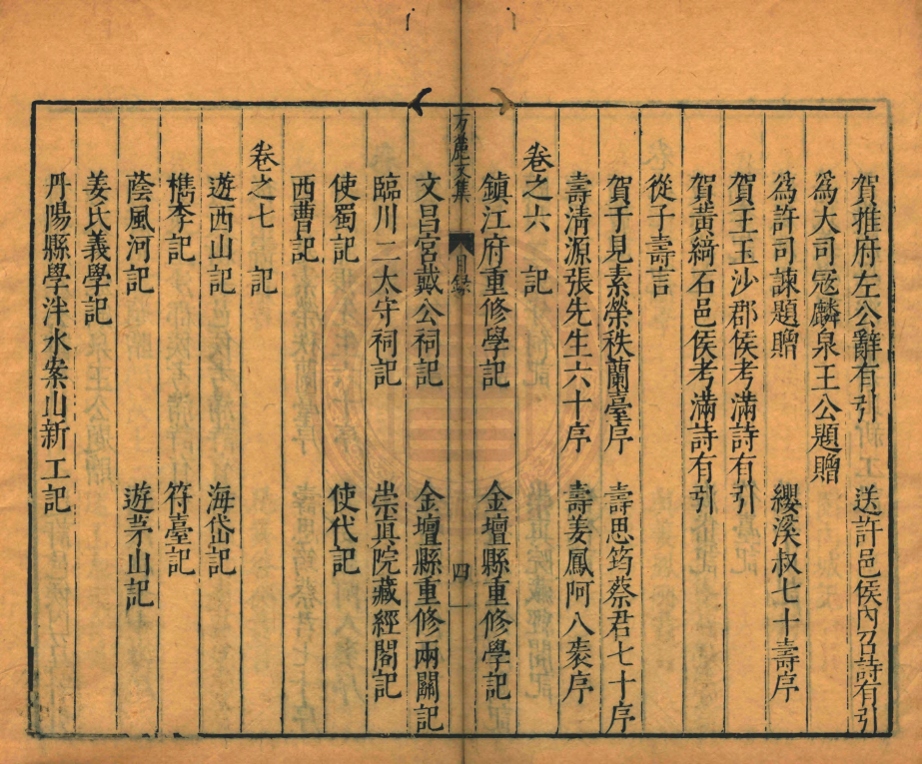 賀推府左公辭有引　送許邑侯內召詩有引
爲大司冦麟泉王公題贈
爲許司諫題贈　纓溪叔七十壽序
賀王玉沙郡侯考滿詩有引
賀黃綺石邑侯考滿詩有引
從子壽言
賀于見素榮秩蘭臺序　壽思筠蔡君七十序
壽清源張先生六十序　壽姜鳳阿八袠序
卷之六　記
鎮江府重修學記　金壇縣重修學記
方麓文集　目録　四
文昌宮戴公祠記　金壇縣重修兩關記
臨川二太守祠記　崇眞院藏經閣記
使蜀記　使代記
西曹記
卷之七　記
遊西山記　海岱記
檇李記　符臺記
蔭風河記　遊茅山記
姜氏義學記
丹陽縣學泮水案山新工記